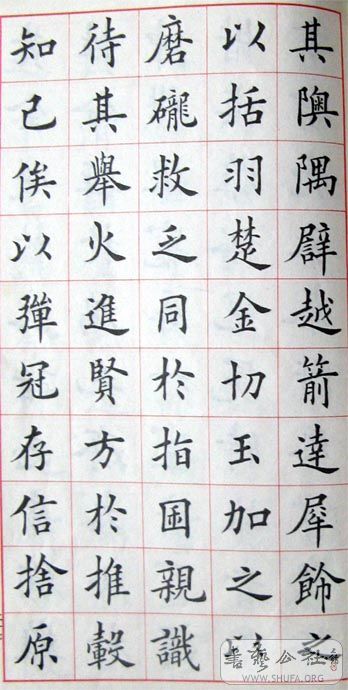 其隩隅譬越箭達犀飾之
以括羽楚金切玉加之以
磨礲救乏同於指囷親識
待其舉火進賢方於推轂
知己俟以彈冠存信捨原
書藝公社
WWW.SHUFA.ORG